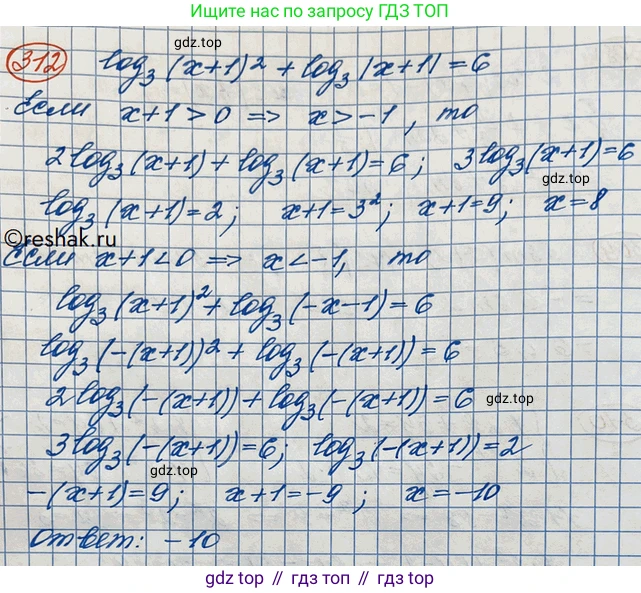 Ищите нас по запросу ГДЗ ТОП
gdz.top
312 log₃(x+1)² + log₃|x+1| = 6
Если x+1>0 => x>-1, то
2log₃(x+1) + log₃(x+1)=6; 3log₃(x+1)=6
gdz.top
log₃(x+1)=2; x+1=3²; x+1=9; x=8
©reshak.ru
Если x+1<0 => x<-1, то
log₃(x+1)² + log₃(-x-1)=6
log₃(-(x+1))² + log₃(-(x+1))=6
2log₃(-(x+1)) + log₃(-(x+1))=6
gdz.top
3log₃(-(x+1))=6; log₃(-(x+1))=2
gdz.top
-(x+1)=9; x+1=-9; x=-10
Ответ: -10
gdz.top гдз топ gdz.top гдз.топ